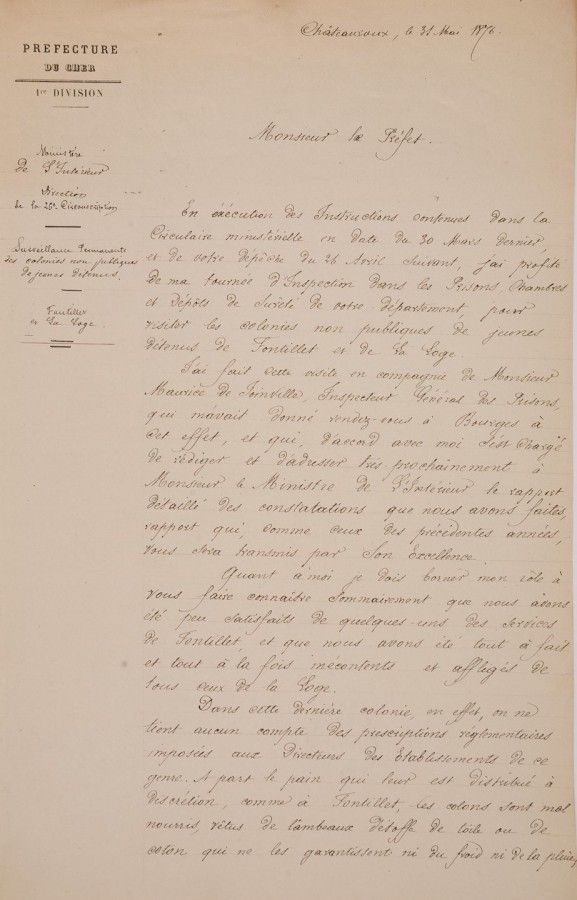 Châteauroux, le 31 Mai 1876.
PREFECTURE
DU CHER
1re DIVISION
Ministère
de l'Intérieur
Direction
de la 26e Circonscription
Surveillance Permanente
des colonies non publiques
de jeunes détenus.
Fontillet
et La Loge.
Monsieur le Préfet.
En exécution des Instructions contenues dans la
Circulaire ministérielle en date du 30 Mars dernier
et de votre dépêche du 26 Avril suivant, j'ai profité
de ma tournée d'Inspection dans les Prisons, Chambres
et Dépôts de Sureté de votre département, pour
visiter les colonies non publiques de jeunes
détenus de Fontillet et de La Loge.
J'ai fait cette visite en compagnie de Monsieur
Maurice de Joinville, Inspecteur Général des Prisons,
qui m'avait donné rendez-vous à Bourges à
cet effet, et qui, d'accord avec moi s'est chargé
de rédiger et d'adresser très prochainement à
Monsieur le Ministre de l'Intérieur le rapport
détaillé des constatations que nous avons faites,
rapport qui, comme ceux des précédentes années,
vous sera transmis par Son Excellence.
Quant à moi je dois borner mon rôle à
vous faire connaître sommairement que nous avons
été peu satisfaits de quelques-uns des services
de Fontillet et que nous avons été tout à fait
et tout à la fois mécontents et affligés de
tous ceux de la Loge.
Dans cette dernière colonie, en effet, on ne
tient aucun compte des prescriptions réglementaires
imposées aux Directeurs des Etablissements de ce
genre. A part le pain qui leur est distribué à
discrétion, comme à Fontillet, les colons sont mal
nourris, vêtus de lambeaux d'étoffe de toile ou de
coton qui ne les garantissent ni du froid ni de la pluie,